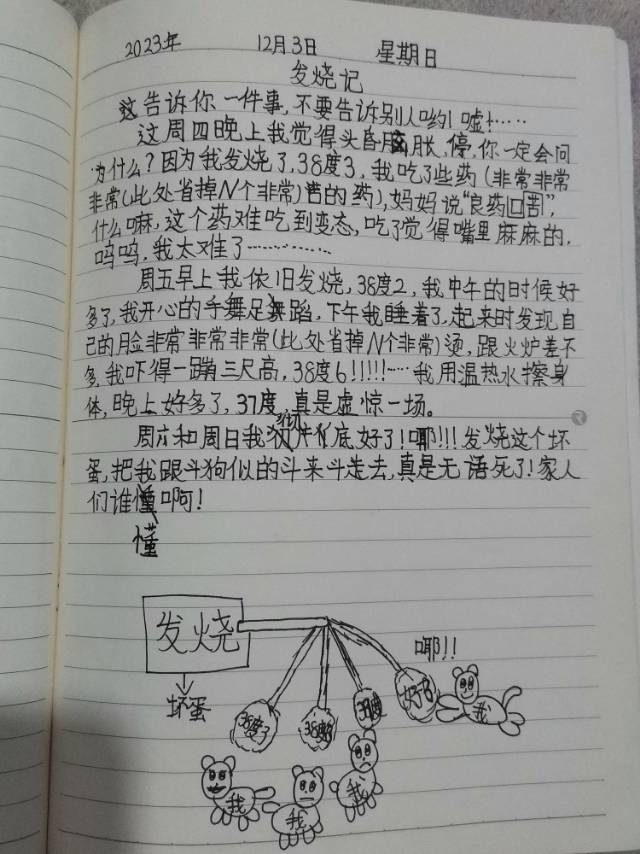 2023年 12月3日 星期日
发烧记
这告诉你一件事,不要告诉别人哟!嘘!……
这周四晚上我觉得头昏脑胀,停,你一定会问
为什么?因为我发烧了,38度3,我吃了些药(非常非常
非常(此处省掉N个非常)苦的药),妈妈说“良药口苦”,
什么嘛,这个药难吃到变态,吃了觉得嘴里麻麻的,
呜呜,我太难了…………
周五早上我依旧发烧,38度2,我中午的时候好
多了,我开心的手舞足舞蹈,下午我睡着了,起来时发现自
己的脸非常非常非常(此处省掉N个非常)烫,跟火炉差不
多,我吓得一蹦三尺高,38度6!!!!!……我用温热水擦身
体,晚上好多了,37度,真是虚惊一场。
周六和周日我彻底好了!耶!!!发烧这个坏
蛋,把我跟斗狗似的斗来斗走去,真是无语死了!家人
们谁懂啊!
懂
发烧
坏蛋
耶!!
38度3
38度
好了
我
我
我
我